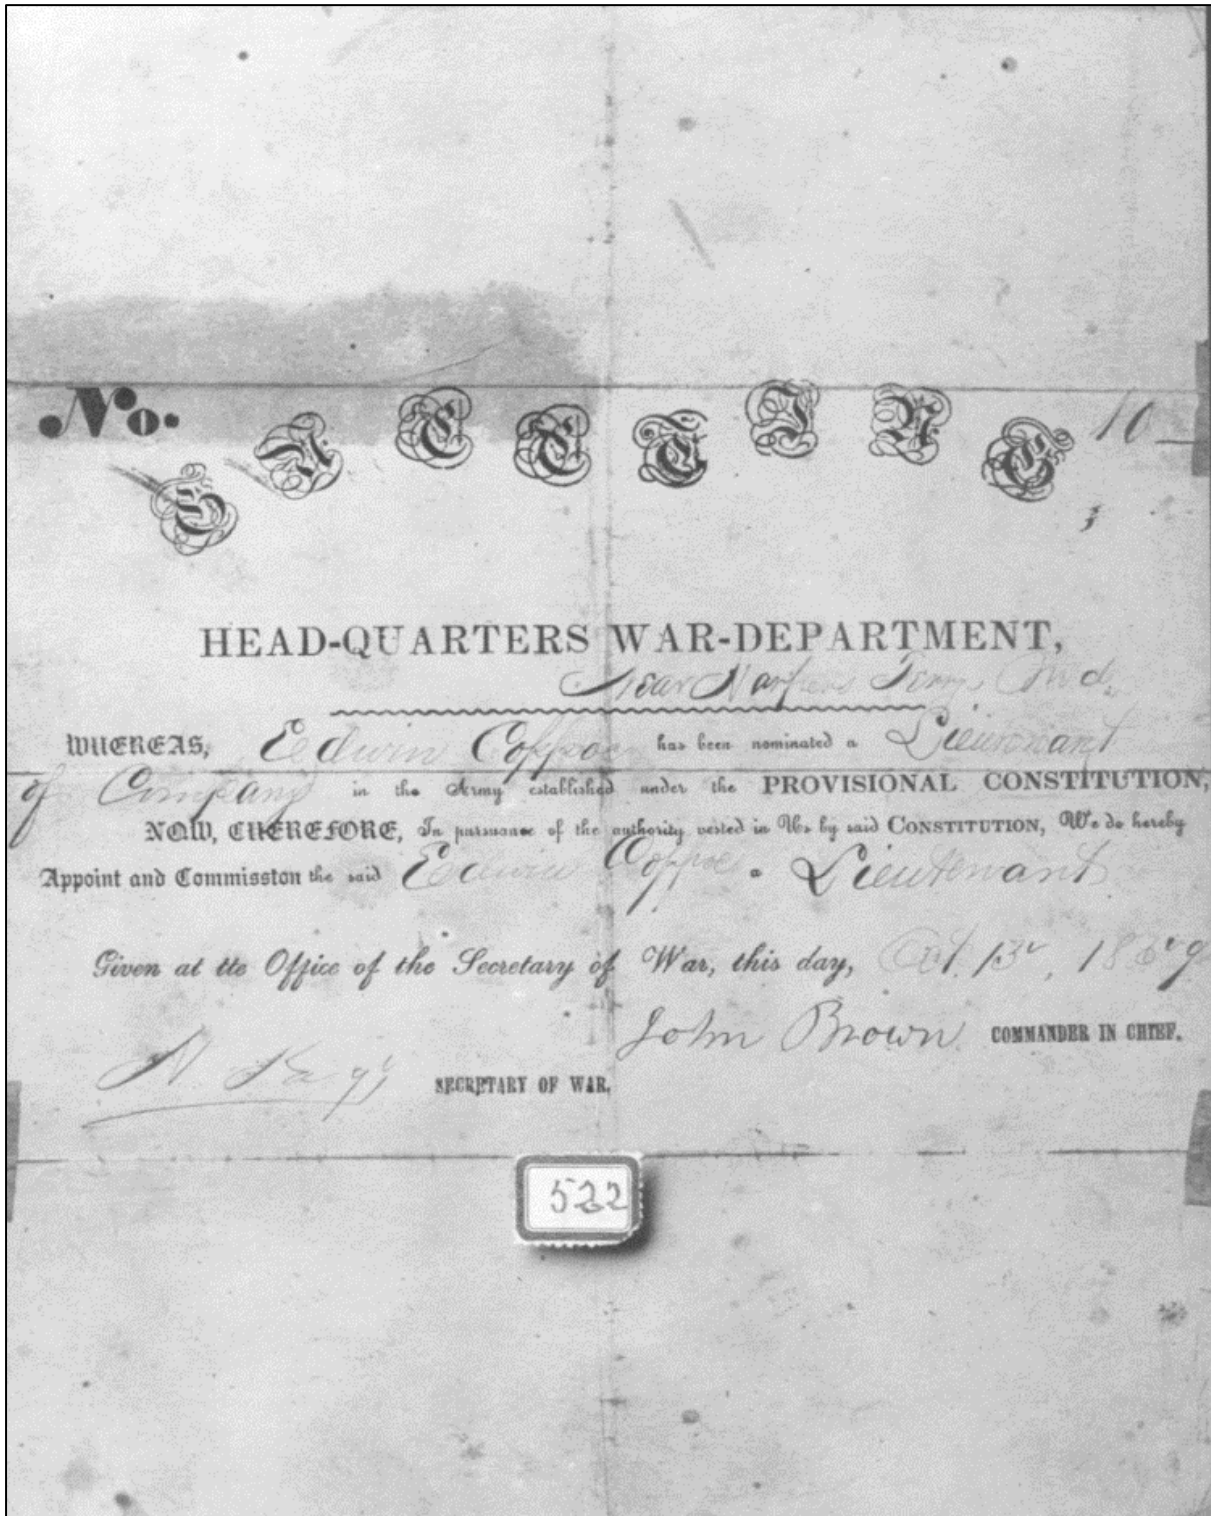 No. GREETING 10
HEAD-QUARTERS WAR-DEPARTMENT,
Near Harpers Ferry Md.
WHEREAS, Edwin Coppoc has been nominated a Lieutenant
of Company in the Army established under the PROVISIONAL CONSTITUTION,
NOW, THEREFORE, In pursuance of the authority vested in Us by said CONSTITUTION, We do hereby
Appoint and Commisston the said Edwin Coppoc a Lieutenant
Given at tte Office of the Secretary of War, this day, Oct. 15, 1859
John Brown COMMANDER IN CHIEF.
H Kagi SECRETARY OF WAR.
522